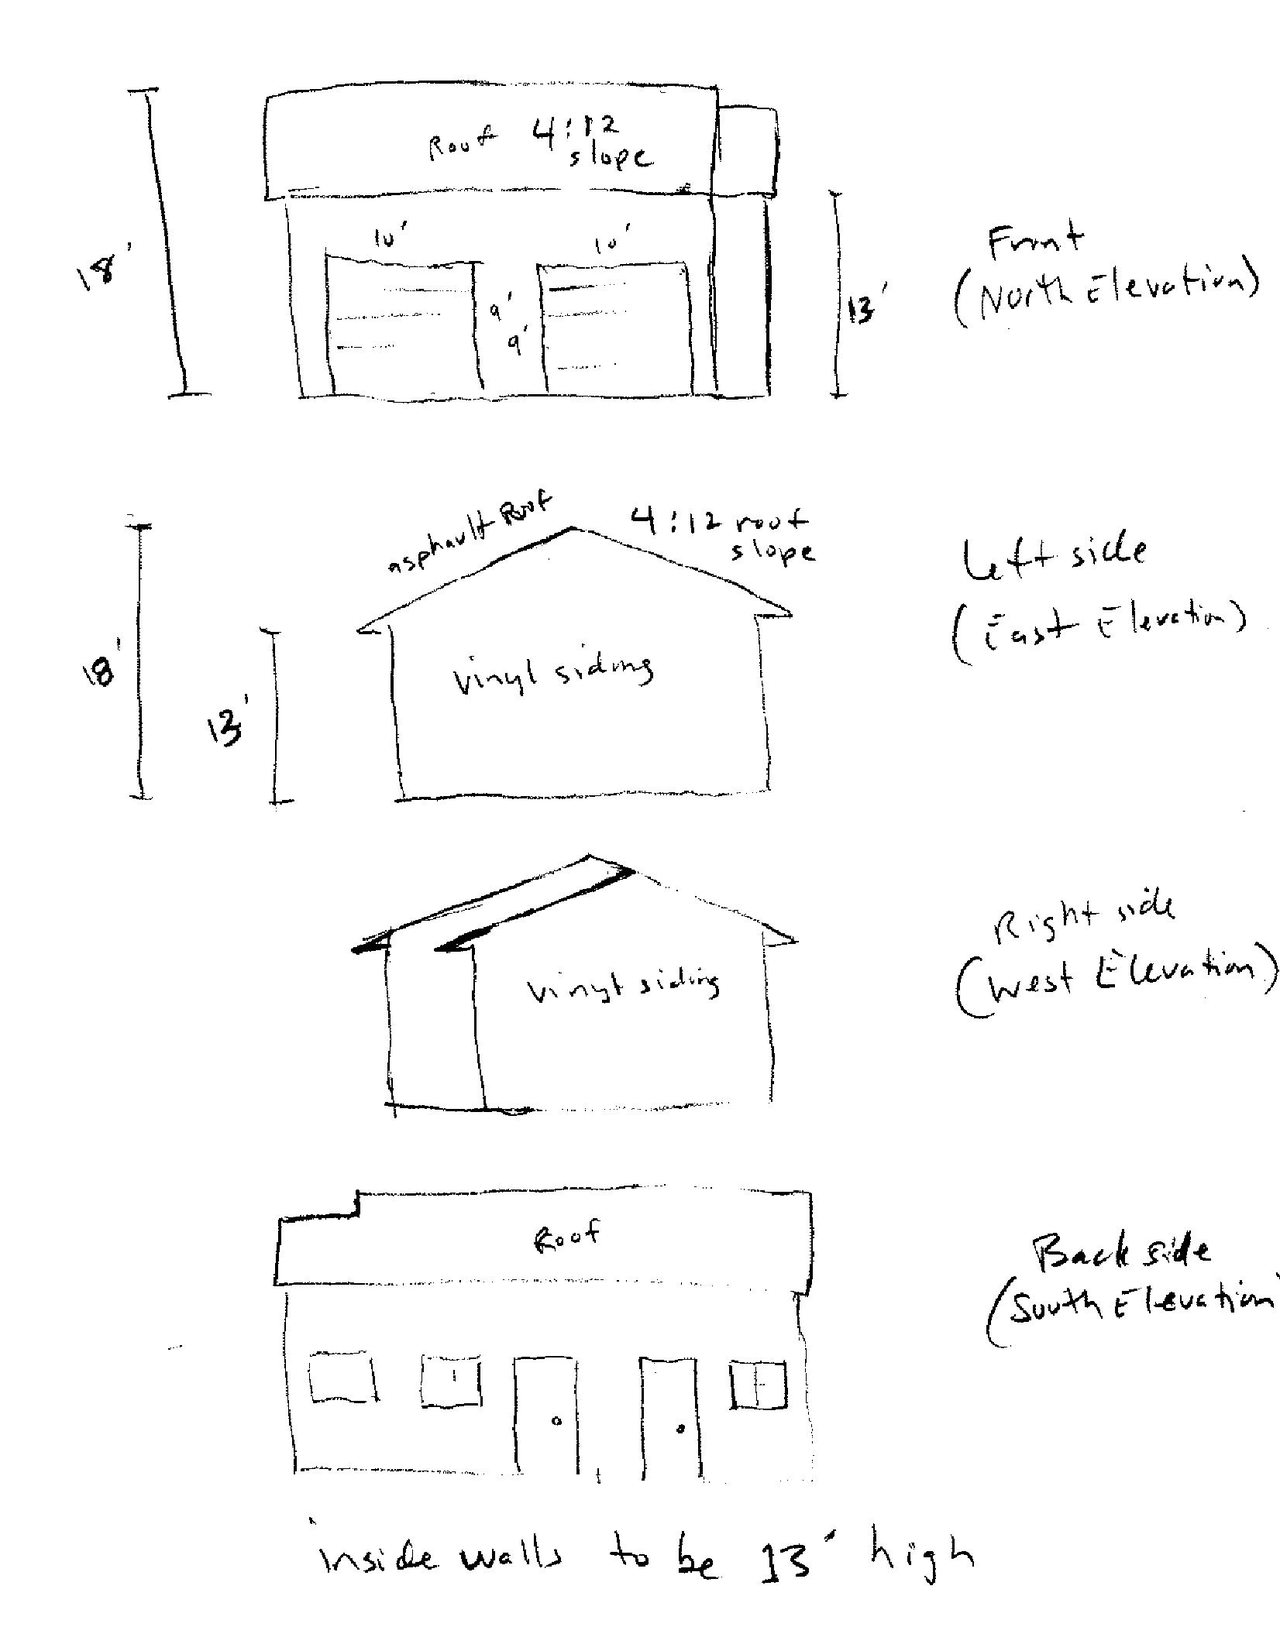 Roof 4:12
slope
18'
10'
10'
9'
9'
13'
Front
(North Elevation)
asphault Roof
4:12 roof
slope
18'
13'
vinyl siding
Left side
(East Elevation)
vinyl siding
Right side
(West Elevation)
Roof
Back side
(South Elevation)
inside walls to be 13' high